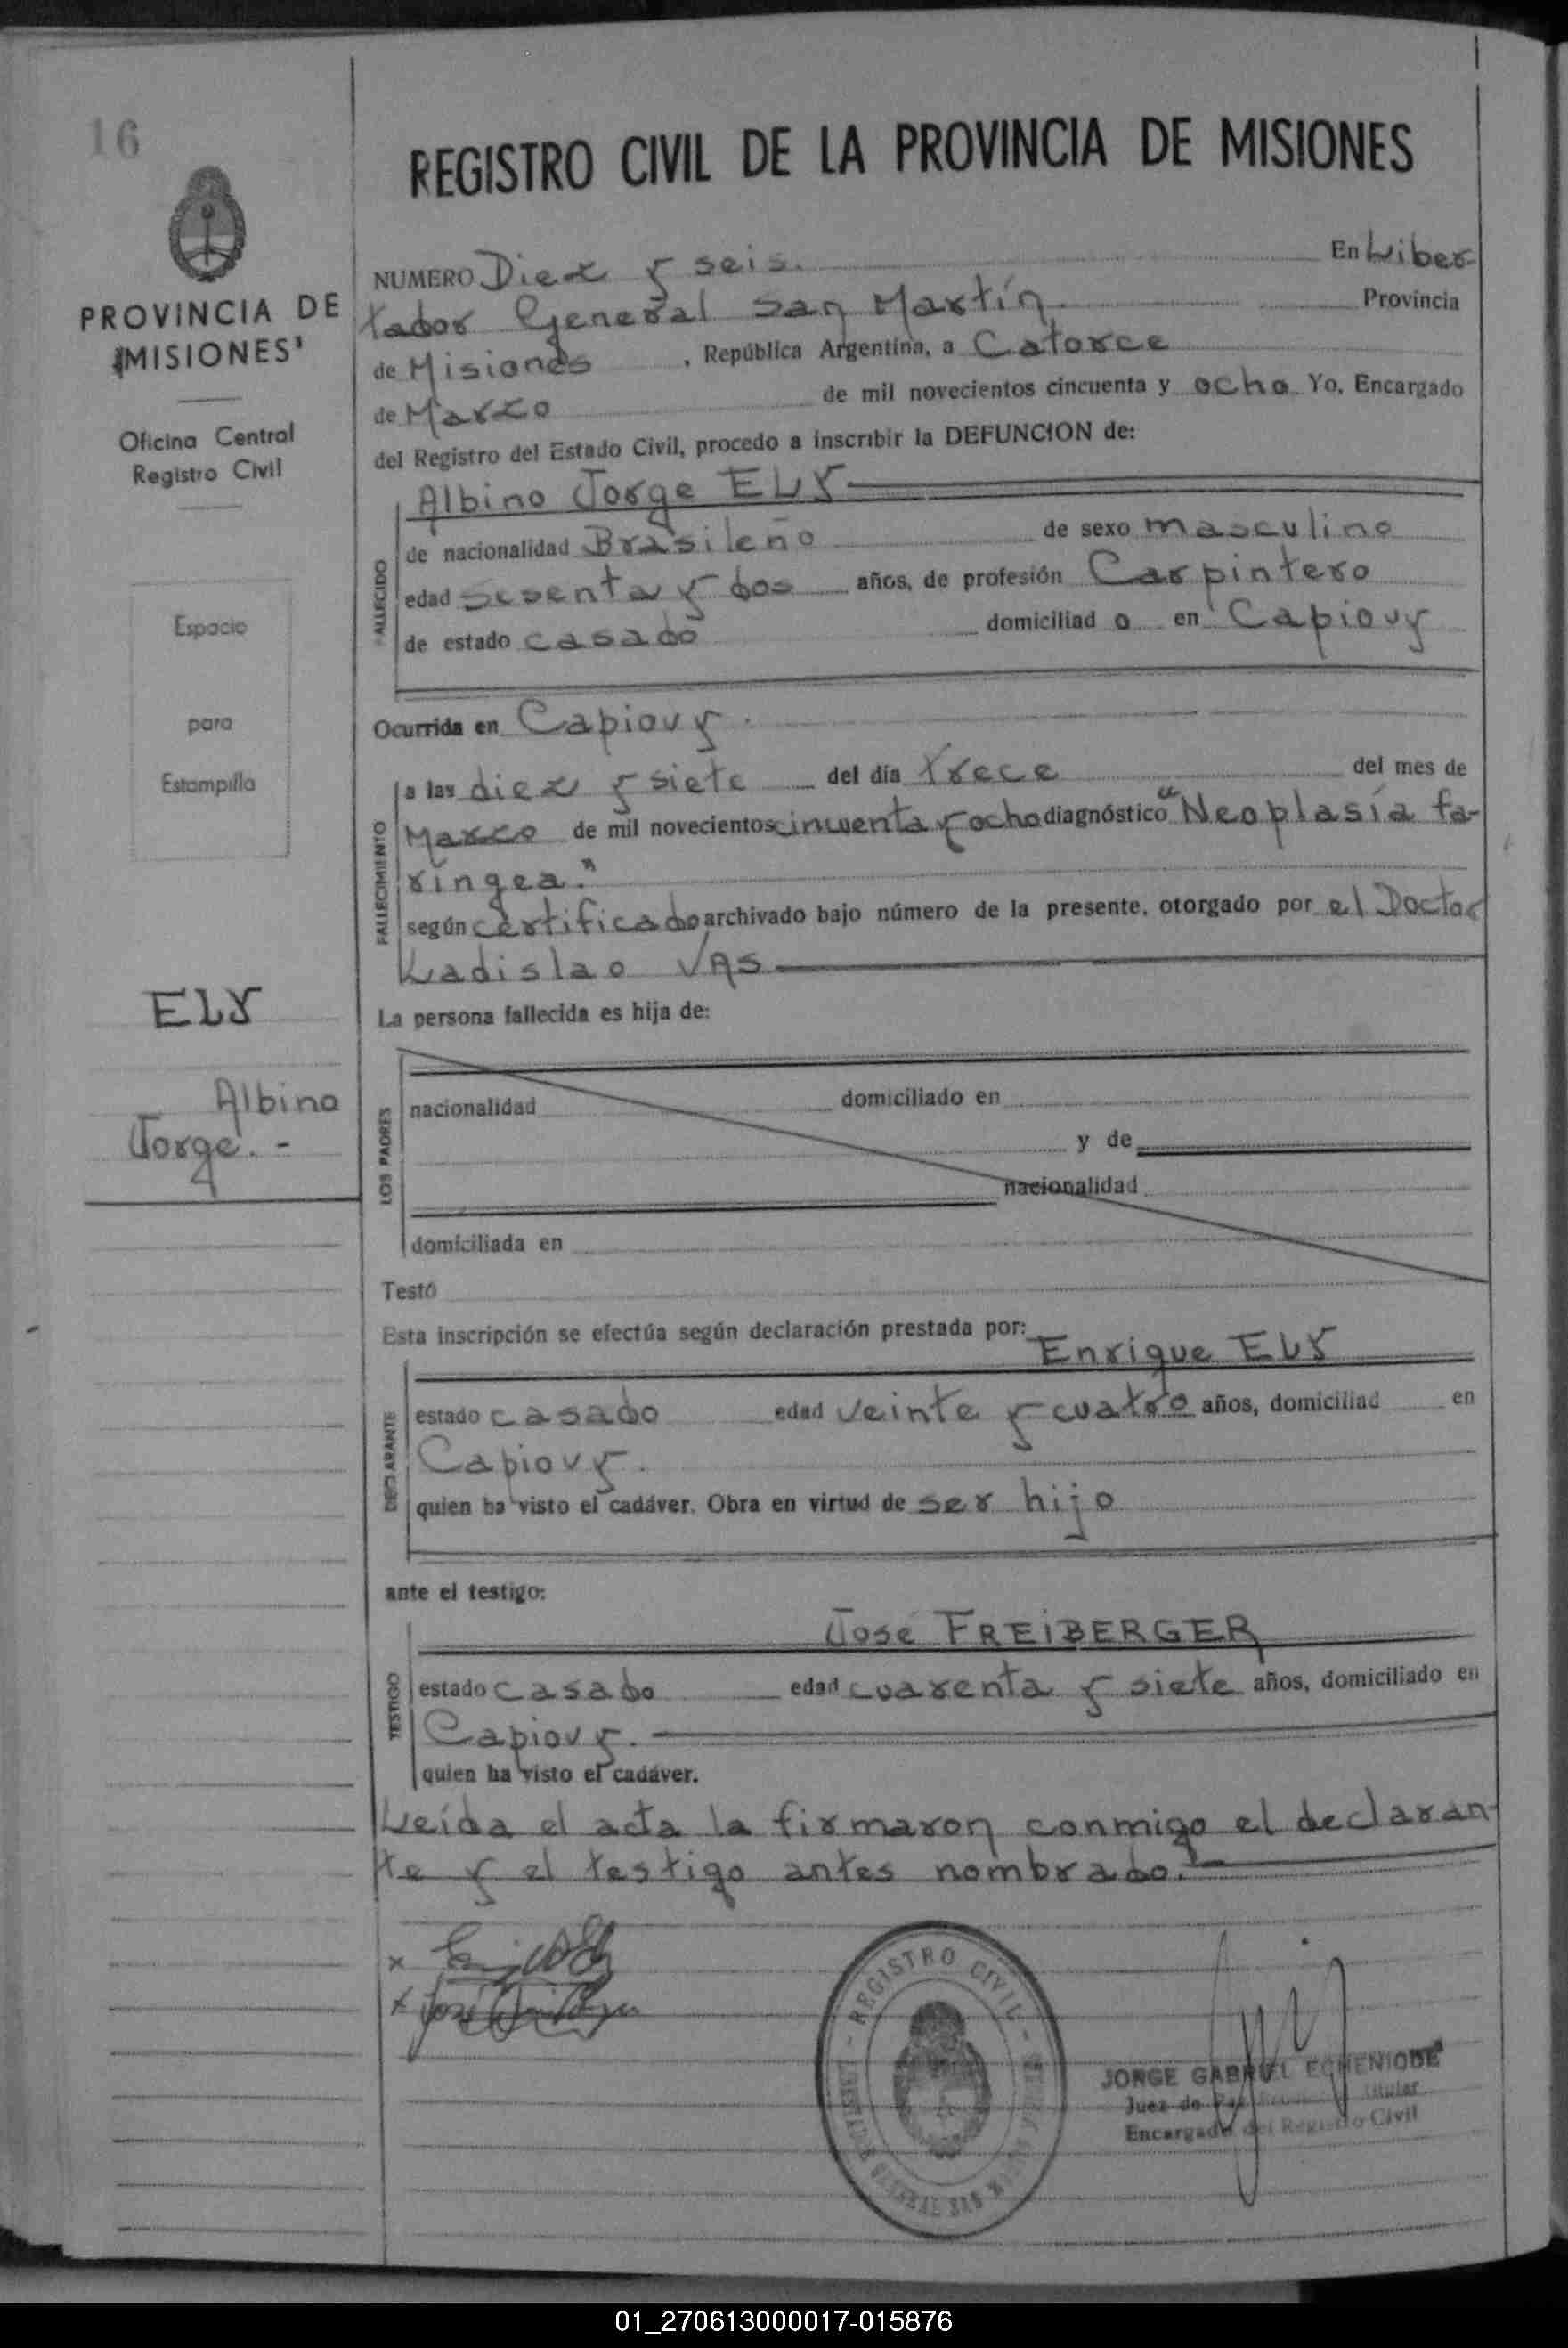 16
PROVINCIA DE
MISIONES
Oficina Central
Registro Civil
Espacio
para
Estampilla
ELY
Albino
Jorge.-
REGISTRO CIVIL DE LA PROVINCIA DE MISIONES
NUMERO Diez y seis. En Liber
tador General San Martín. Provincia
de Misiones, República Argentina, a Catorce
de Marzo de mil novecientos cincuenta y ocho Yo, Encargado
del Registro del Estado Civil, procedo a inscribir la DEFUNCION de:
Albino Jorge ELY
FALLECIDO
de nacionalidad Brasileño de sexo masculino
edad sesenta y dos años, de profesión Carpintero
de estado casado domiciliad o en Capiovy
Ocurrida en Capiovy.
FALLECIMIENTO
a las diez y siete del día trece del mes de
Marzo de mil novecientos cincuenta y ocho diagnóstico "Neoplasía fa-
ríngea."
según certificado archivado bajo número de la presente, otorgado por el Doctor
Ladislao VAS
La persona fallecida es hija de:
LOS PADRES
nacionalidad domiciliado en
y de
nacionalidad
domiciliada en
Testó
Esta inscripción se efectúa según declaración prestada por:
Enrique ELY
DECLARANTE
estado casado edad veinte y cuatro años, domiciliad en
Capiovy.
quien ha visto el cadáver. Obra en virtud de ser hijo
ante el testigo:
José FREIBERGER
TESTIGO
estado casado edad cuarenta y siete años, domiciliado en
Capiovy.
quien ha visto el cadáver.
Leída el acta la firmaron conmigo el declaran-
te y el testigo antes nombrado.
x
x José
REGISTRO CIVIL
LIBERTADOR GENERAL SAN MARTIN
JORGE GABRIEL ECHENIQUE
Juez de Paz Titular
Encargado del Registro Civil
01_270613000017-015876